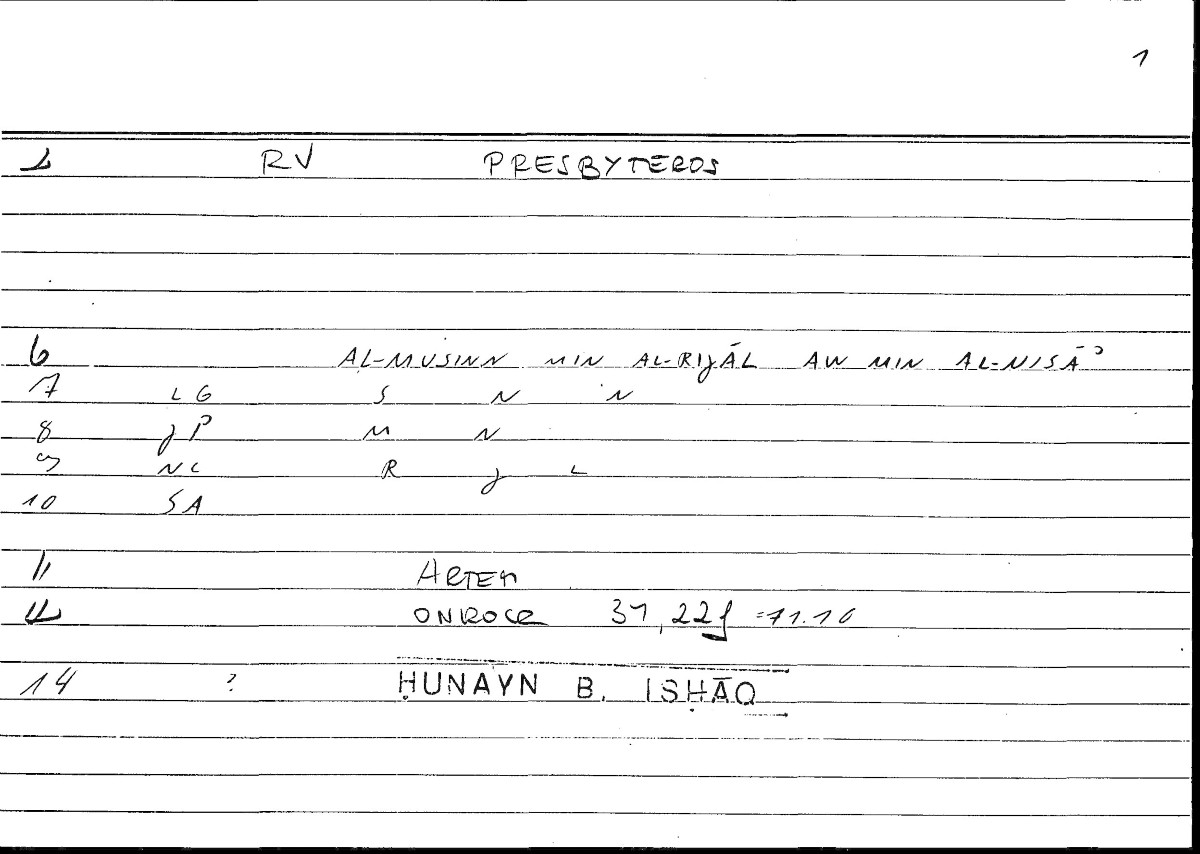 1
1 RV PRESBYTEROS
6 AL-MUSINN MIN AL-RIJĀL AW MIN AL-NISĀʾ
7 LG S N N
8 JP M N
9 NC R J L
10 SA
11 ARTEM
12 ONIROCR 31,22f =11.10
14 ? ḤUNAYN B. ISḤĀQ